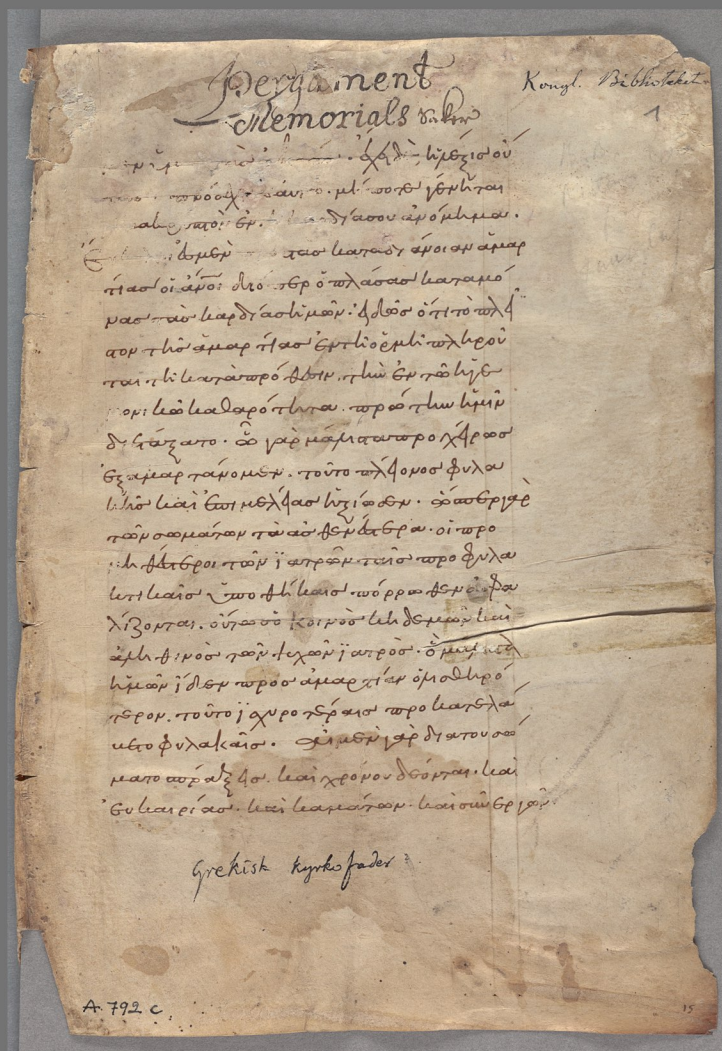 Pergament
Memorials saker
Kongl. Biblioteket
1
μή ποτε γένηται
ἐν διασου ἀνόμημα.
ἐσμεν τὰς κατὰ διάνοιαν ἁμαρ
τίας οἱ ἄνοι· διόπερ ὁ πλάσας καταμό
νας τὰς καρδίας ἡμῶν· εἰδὼς ὅτι τὸ πλεῖ
στον τῆς ἁμαρτίας ἐν τῆ ὁρμῆ πληροῦ
ται τῆ κατὰ πρόθεσιν. τὴν ἐν τῶ ἡγε
μονικῶ καθαρότητα. πρώτην ἡμῖν
διετάξατο. ὧ γὰρ μάλιστα προχείρως
ἐξαμαρτάνομεν. τοῦτο πλείονος φυλα
κῆς καὶ ἐπιμελείας ἠξίωσεν. ὥσπερ γὰρ
τῶν σωμάτων τὰ ἀσθενέστερα. οἱ προ
μηθέστεροι τῶν ϊατρῶν ταῖς προφυλα
κτικαῖς ὑποθήκαις πόρρωθεν ἀσφα
λίζονται. οὕτως ὁ κοινὸς κηδεμὼν καὶ
ἀληθινὸς τῶν ψυχῶν ϊατρὸς.
ἡμῶν ἴδεν πρὸς ἁμαρτίαν ὀλισθηρό
τερον. τοῦτο ϊσχυροτέραις προκατελά
βετο φυλακαῖς. αἱ μὲν γὰρ διὰ τοῦ σώ
ματος πράξεις. καὶ χρόνου δέονται. καὶ
εὐκαιρίας. καὶ καμάτων. καὶ συνεργῶν
Grekisk Kyrkofader
A. 792 c.
15